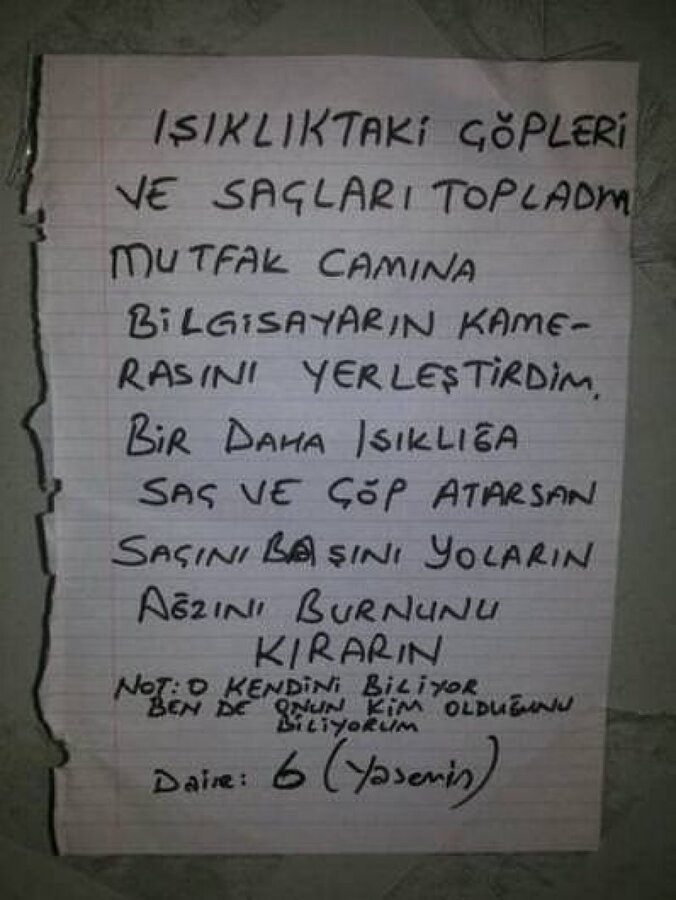 IŞIKLIKTAKİ ÇÖPLERİ
VE SAÇLARI TOPLADM
MUTFAK CAMINA
BİLGİSAYARIN KAME-
RASINI YERLEŞTİRDİM.
BİR DAHA IŞIKLIĞA
SAÇ VE ÇÖP ATARSAN
SAÇINI BAŞINI YOLARIN
AĞZINI BURNUNU
KIRARIN
NOT: O KENDİNİ BİLİYOR
BEN DE ONUN KİM OLDUĞUNU
BİLİYORUM
Daire: 6 (Yasemin)